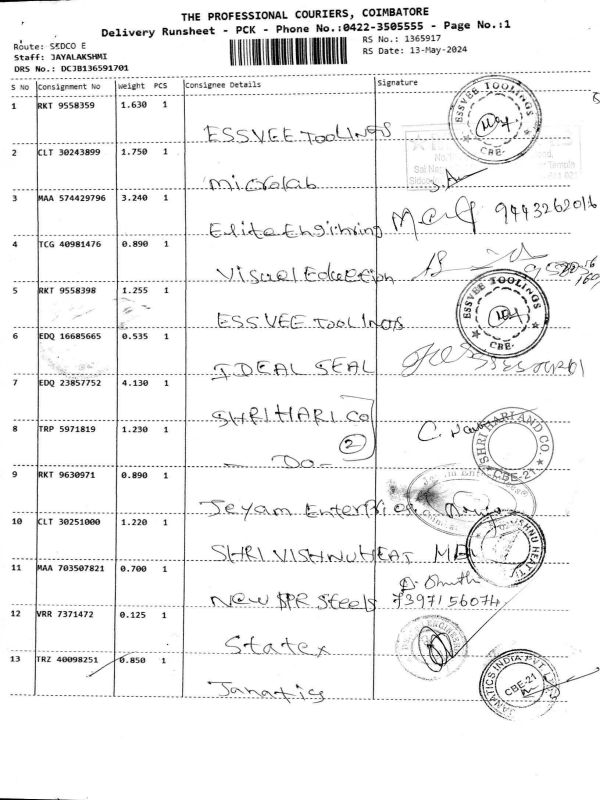 THE PROFESSIONAL COURIERS, COIMBATORE
Delivery Runsheet - PCK - Phone No.:0422-3505555 - Page No.:1
Route: SEDCO E
Staff: JAYALAKSHMI
DRS No.: DCJB136591701
RS No.: 1365917
RS Date: 13-May-2024
S No Consignment No Weight PCS Consignee Details Signature
1 RKT 9558359 1.630 1
ESSVEE TOOLINGS
ESSVEE TOOLINGS CBE-
2 CLT 30243899 1.750 1
Microlab
3 MAA 574429796 3.240 1
Elite Engihring 9443262016
4 TCG 40981476 0.890 1
Visual Education
5 RKT 9558398 1.255 1
ESSVEE TOOLINGS
ESSVEE TOOLINGS CBE-
6 EDQ 16685665 0.535 1
IDEAL SEAL
7 EDQ 23857752 4.130 1
SHRI HARI CO
2
8 TRP 5971819 1.230 1
- DO -
SHRI HARI AND CO. CBE-21
9 RKT 9630971 0.890 1
Jeyam Enterprices
10 CLT 30251000 1.220 1
SHRI VISHNU HEAT
11 MAA 703507821 0.700 1
NEW SPR Steels 7397156074
12 VRR 7371472 0.125 1
Statex
13 TRZ 40098251 0.850 1
Janatics
JANATICS INDIA PVT. LTD CBE-21